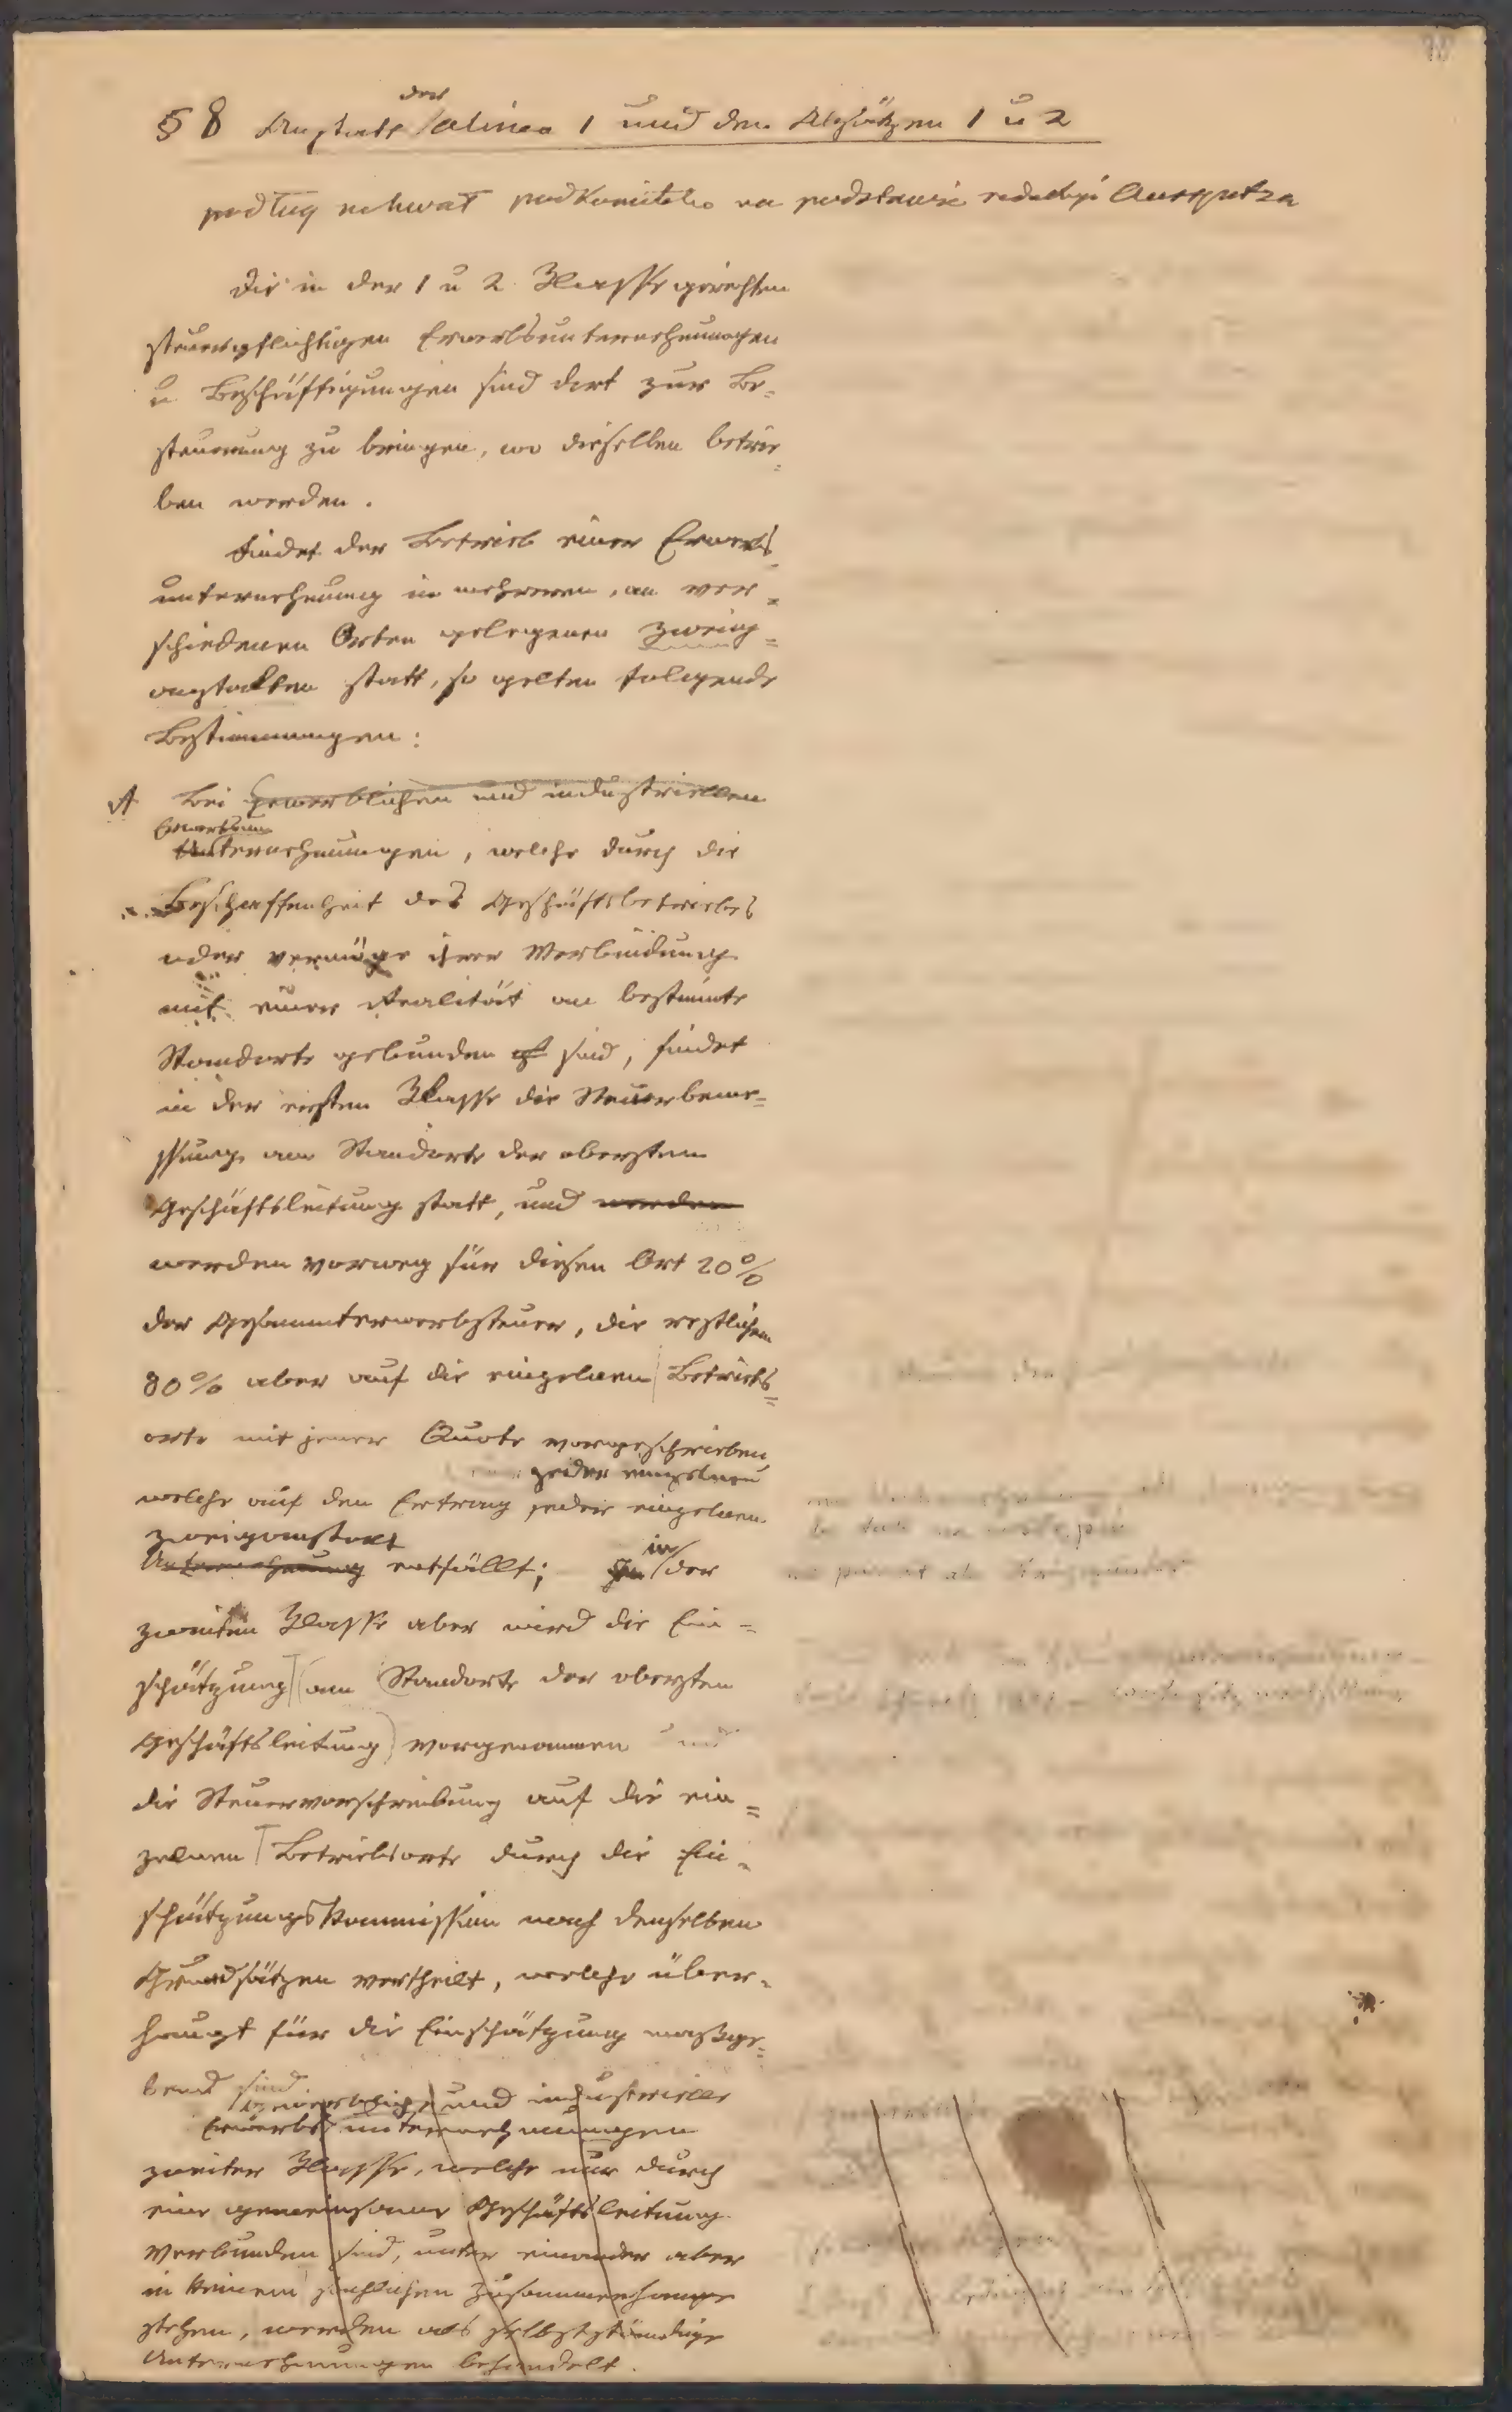 § 8 Anstatt der alinea 1 und den Absätzen 1 u 2
podług uchwał podkomitetu na podstawie redakcji Auspitza
Die in der 1 u 2. Klasse gereihten
steuerpflichtigen Erwerbsunternehmungen
u. Beschäftigungen sind dort zur Be=
steuerung zu bringen, wo dieselben betrie=
ben werden.
Findet der Betrieb einer Erwerbs=
unternehmung in mehreren, an ver=
schiedenen Orten gelegenen Zweig=
anstalten statt, so gelten folgende
Bestimmungen:
A Bei gewerblichen und industriellen
Erwerbsun
Unternehmungen, welche durch die
Beschaffenheit des Geschäftsbetriebes
oder vermöge ihrer Verbindung
mit einer Realität an bestimmte
Standorte gebunden sind, findet
in der ersten Klasse die Steuerbeme=
ssung am Standorte der obersten
Geschäftsleitung statt, und werden
werden vorweg für diesen Ort 20%
der Gesammterwerbsteuer, die restlichen
80% aber auf die einzelnen Betriebs=
orte mit jener Quote vorgeschrieben
jeder einzelnen
welche auf den Ertrag jeder einzelnen
Zweiganstalt
Unternehmung entfällt; in der
zweiten Klasse aber wird die Ein=
schätzung (am Standorte der obersten
Geschäftsleitung) vorgenommen und
die Steuervorschreibung auf die ein=
zelnen Betriebsorte durch die Ein=
schätzungskommission nach denselben
Grundsätzen vertheilt, welche über=
haupt für die Einschätzung maßge=
bend sind
Gewerbliche und industrielle
Erwerbsunternehmungen
zweiter Klasse, welche nur durch
eine gemeinsame Geschäftsleitung
verbunden sind, unter einander aber
in keinem sachlichen Zusammenhange
stehen, werden als selbstständige
Unternehmungen behandelt.